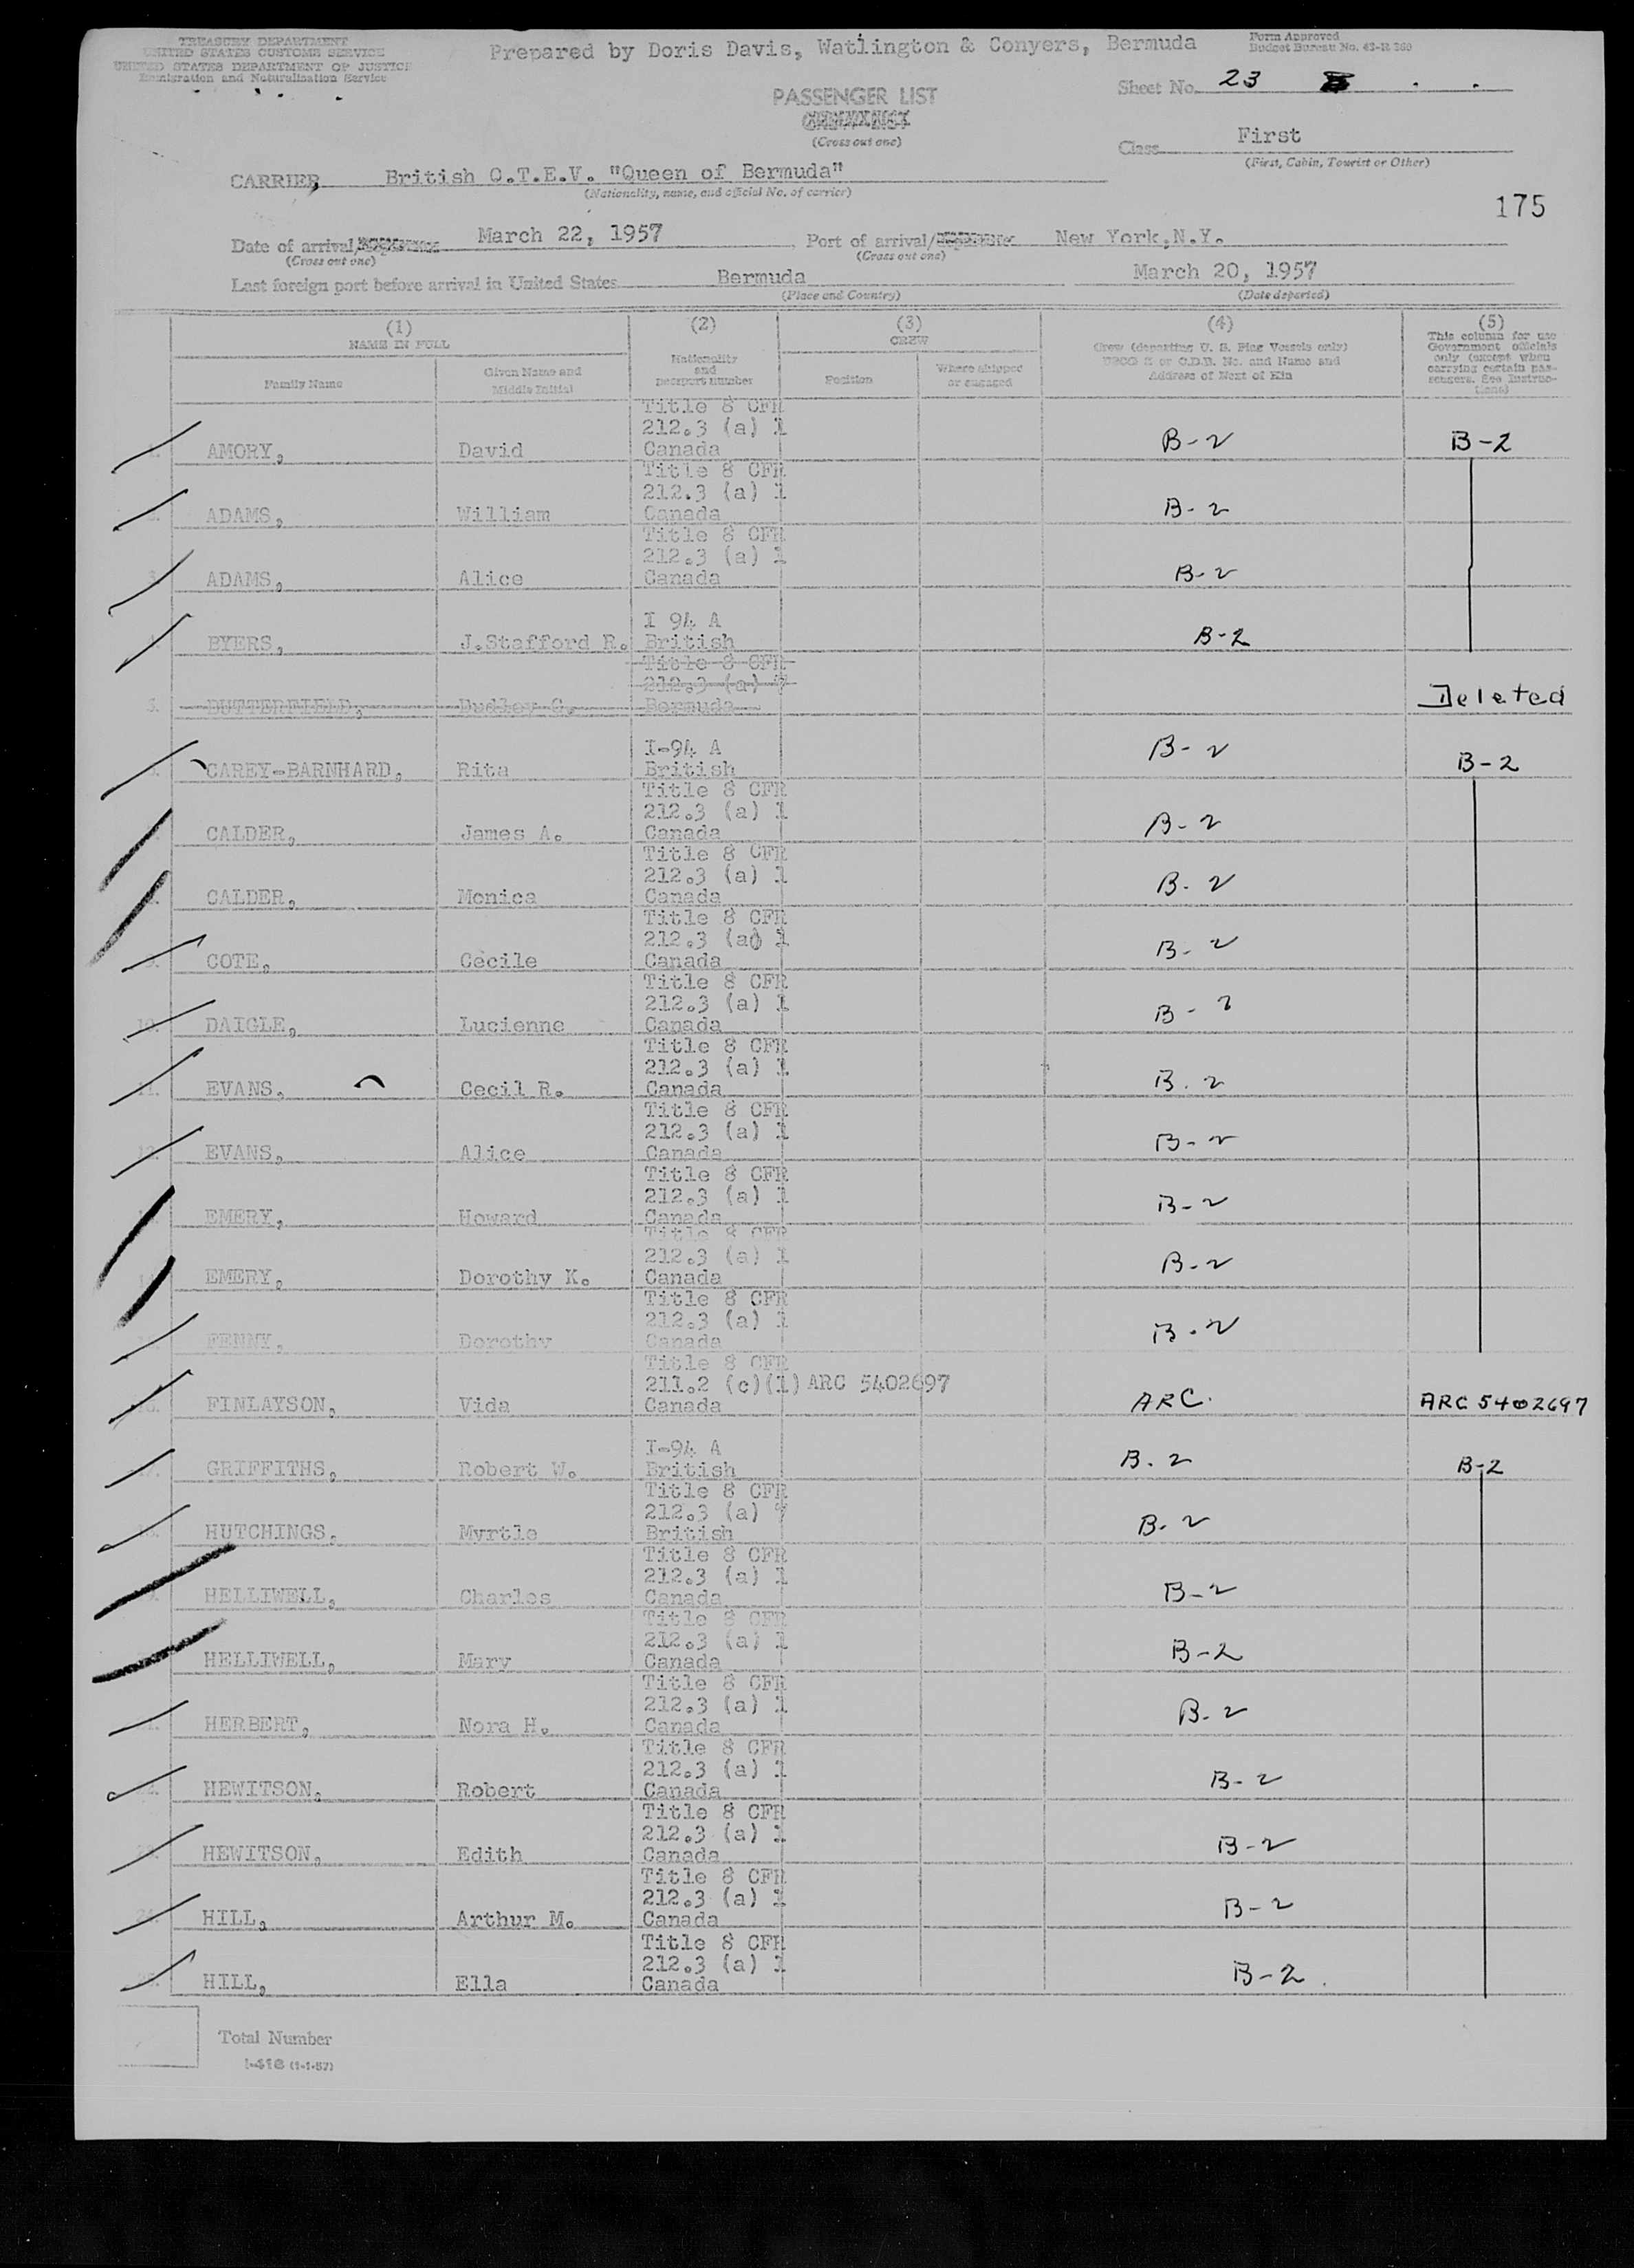 TREASURY DEPARTMENT
UNITED STATES CUSTOMS SERVICE
UNITED STATES DEPARTMENT OF JUSTICE
Immigration and Naturalization Service
Prepared by Doris Davis, Watlington & Conyers, Bermuda
Form Approved
Budget Bureau No. 43-R 369
Sheet No. 23
PASSENGER LIST
(Cross out one)
Class First
(First, Cabin, Tourist or Other)
CARRIER British O.T.E.V. "Queen of Bermuda"
(Nationality, name, and official No. of carrier)
175
Date of arrival/ March 22, 1957 Port of arrival/ New York, N.Y.
(Cross out one) (Cross out one)
Last foreign port before arrival in United States Bermuda March 20, 1957
(Place and Country) (Date departed)
(1) (2) (3) (4) (5)
NAME IN FULL
Family Name
Given Name and Middle Initial
Nationality and passport number
CREW
Position
Where shipped or engaged
Crew (departing U. S. Flag Vessels only)
USCG Z or C.D.B. No. and Name and
Address of Next of Kin
This column for use
Government officials
only (except when
carrying certain pas-
sengers. See Instruc-
tions)
Title 8 CFR
212.3 (a) 1
AMORY, David Canada B-2 B-2
Title 8 CFR
212.3 (a) 1
2. ADAMS, William Canada B-2
Title 8 CFR
212.3 (a) 1
3. ADAMS, Alice Canada B-2
I 94 A
BYERS, J.Stafford R. British B-2
Title 8 CFR
212.3 (a) 7
5. BUTTERFIELD, Dudley C. Bermuda Deleted
I-94 A
CAREY-BARNHARD, Rita British B-2 B-2
Title 8 CFR
212.3 (a) 1
CALDER, James A. Canada B-2
Title 8 CFR
212.3 (a) 1
CALDER, Monica Canada B-2
Title 8 CFR
212.3 (a) 1
9. COTE, Cecile Canada B-2
Title 8 CFR
212.3 (a) 1
10. DAIGLE, Lucienne Canada B-2
Title 8 CFR
212.3 (a) 1
11. EVANS, Cecil R. Canada B-2
Title 8 CFR
212.3 (a) 1
12. EVANS, Alice Canada B-2
Title 8 CFR
212.3 (a) 1
EMERY, Howard Canada B-2
Title 8 CFR
212.3 (a) 1
14. EMERY, Dorothy K. Canada B-2
Title 8 CFR
212.3 (a) 1
FENNY, Dorothy Canada B-2
Title 8 CFR
211.2 (c)(1) ARC 5402697
FINLAYSON, Vida Canada ARC. ARC 5402697
I-94 A
GRIFFITHS, Robert W. British B-2 B-2
Title 8 CFR
212.3 (a) 7
HUTCHINGS, Myrtle British B-2
Title 8 CFR
212.3 (a) 1
HELLIWELL, Charles Canada B-2
Title 8 CFR
212.3 (a) 1
HELLIWELL, Mary Canada B-2
Title 8 CFR
212.3 (a) 1
HERBERT, Nora H. Canada B-2
Title 8 CFR
212.3 (a) 1
HEWITSON, Robert Canada B-2
Title 8 CFR
212.3 (a) 1
HEWITSON, Edith Canada B-2
Title 8 CFR
212.3 (a) 1
24. HILL, Arthur M. Canada B-2
Title 8 CFR
212.3 (a) 1
HILL, Ella Canada B-2
Total Number
I-418 (1-1-57)